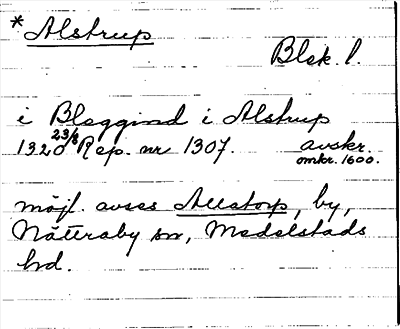 * Alstrup
Blek. l.
i Bleggind i Alstrup
1320 23/8 Rep. nr 1307. avskr.
omkr. 1600.
möjl. avses Allatorp, by,
Nättraby sn, Medelstads
hd.